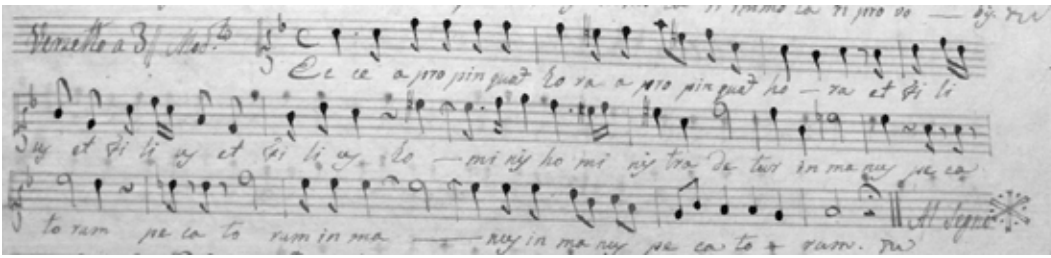 Versetto a 3
Ec ce a pro pinquat ho ra a pro pinquat ho — ra et Fi li
us et Fi li us et Fi li us ho — mi nis ho mi nis tra de tur in ma nus pe ca
to rum pe ca to rum in ma — nus in ma nus pe ca to rum.
Al Segno